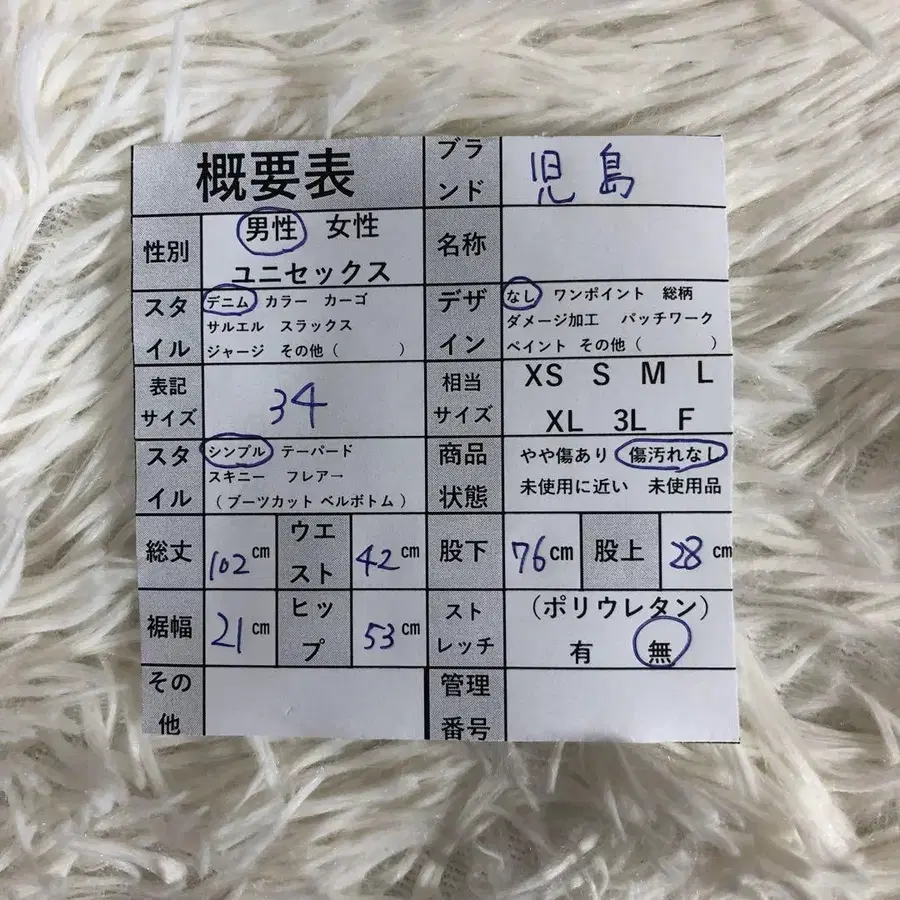 概要表
ブランド
児島
性別
男性 女性
ユニセックス
名称
スタイル
デニム カラー カーゴ
サルエル スラックス
ジャージ その他( )
デザイン
なし ワンポイント 総柄
ダメージ加工 パッチワーク
ペイント その他( )
表記
サイズ
34
相当
サイズ
XS S M L
XL 3L F
スタイル
シンプル テーパード
スキニー フレアー
(ブーツカット ベルボトム)
商品
状態
やや傷あり 傷汚れなし
未使用に近い 未使用品
総丈
102cm
ウエスト
42cm
股下
76cm
股上
28cm
裾幅
21cm
ヒップ
53cm
ストレッチ
(ポリウレタン)
有 無
その他
管理
番号